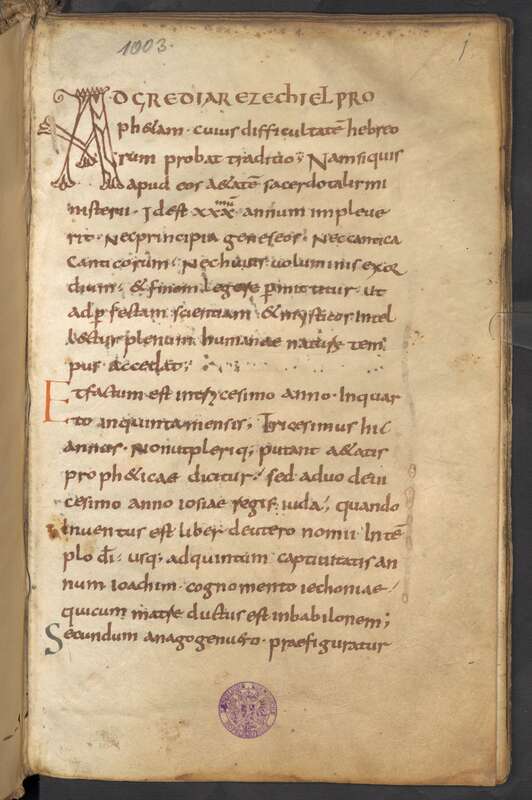 1003.
1
ADGREDIAR EZECHIEL PRO
ph&am · cuius difficultatē hebreo
rum probat traditio; Namsiquis
apud eos a&atē sacerdotalirmi
nisterii · Idest xxx annum impleue
rit · Nec principia geneseos · Nec cantica
canticorum · Nec huius uoluminis exor
dium · & finem legere pmittitur · ut
ad pfectam scientiam & mysticos intel
lectus plenum humanae naturę tem
pus accedat;
Et factum est intrycesimo anno · Inquar
to inquinta mensis; Tricesimus hic
annus · Non utpleriq; putant a&atis
proph&icae dicitur; sed aduo dein
cesimo anno iosiae regis iuda; quando
inuentus est liber deutero nomii Intē
plo dī · usq; adquintum captiuitatis an
num ioachim · cognomento iechoniae
qui cum matre ductus est inbabilonem;
Secundum anagogen uero · praefiguratur